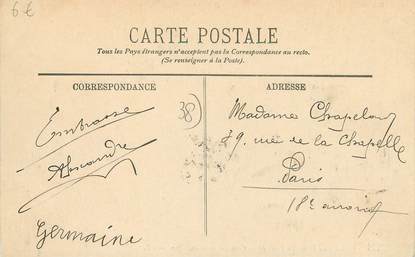 6€
CARTE POSTALE
Tous les Pays étrangers n'acceptent pas la Correspondance au recto.
(Se renseigner à la Poste).
CORRESPONDANCE
ADRESSE
Embrasse
Alexandre
Germaine
38
Madame Chapelon
79. rue de la Chapelle
Paris
18e arrondt